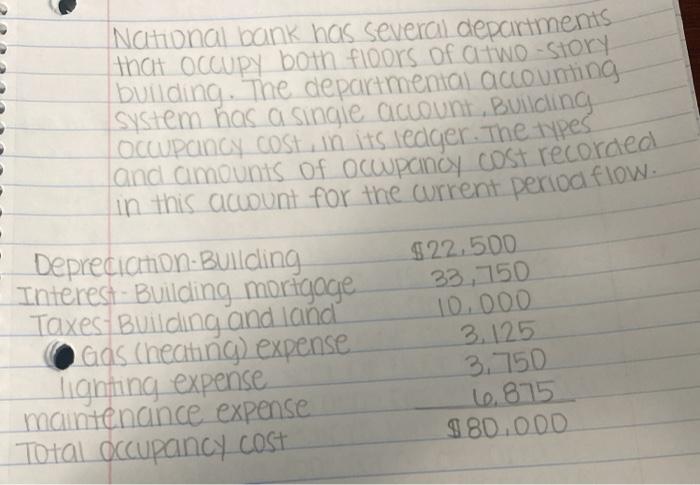 National bank has several departments
that occupy both floors of a two-story
building. The departmental accounting
system has a single account, Building
occupancy cost, in its ledger. The types
and amounts of occupancy cost recorded
in this account for the current period flow.
Depreciation-Building $22,500
Interest-Building mortgage 33,750
Taxes-Building and land 10,000
Gas (heating) expense 3,125
lighting expense 3,750
maintenance expense 6,875
Total occupancy cost $80,000